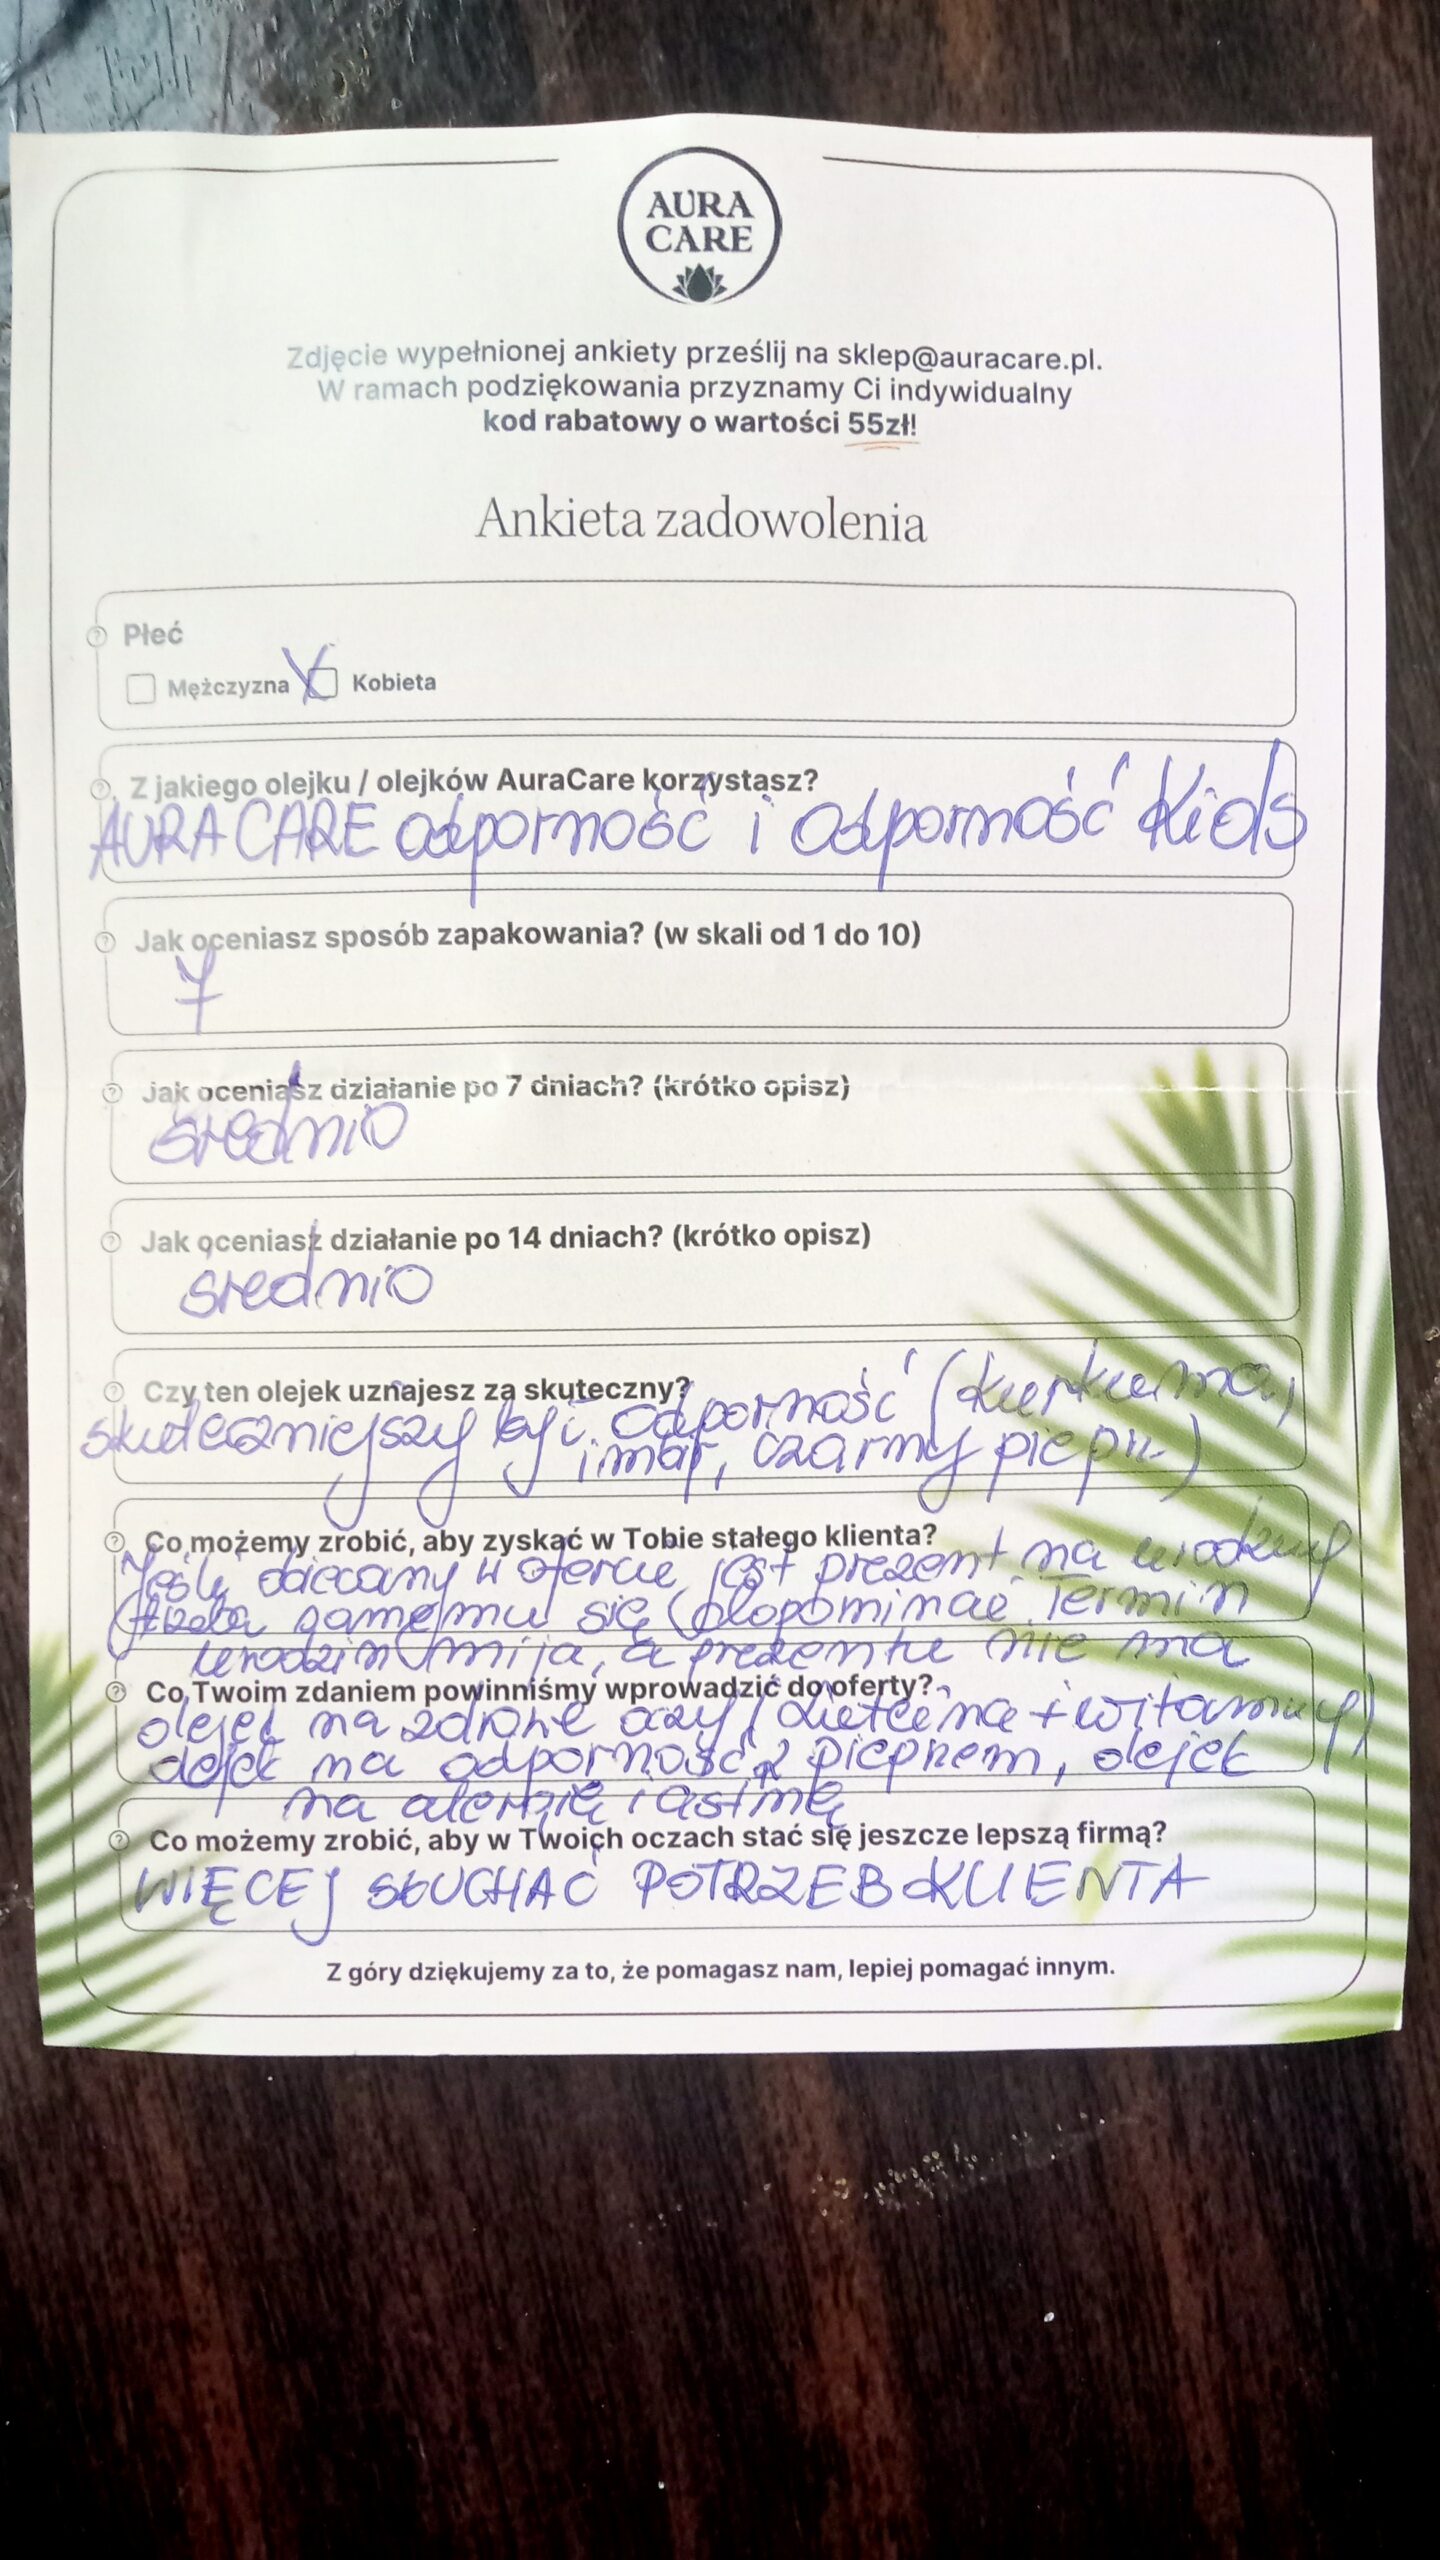 AURA
CARE
Zdjęcie wypełnionej ankiety prześlij na sklep@auracare.pl.
W ramach podziękowania przyznamy Ci indywidualny
kod rabatowy o wartości 55zł!
Ankieta zadowolenia
Płeć
Mężczyzna X Kobieta
Z jakiego olejku / olejków AuraCare korzystasz?
AURA CARE odporność i Odporność Kids
Jak oceniasz sposób zapakowania? (w skali od 1 do 10)
7
Jak oceniasz działanie po 7 dniach? (krótko opisz)
średnio
Jak oceniasz działanie po 14 dniach? (krótko opisz)
średnio
Czy ten olejek uznajesz za skuteczny?
skuteczniejszy był odporność (kurkuma,
imbir, czarny pieprz)
Co możemy zrobić, aby zyskać w Tobie stałego klienta?
Jeśli obiecany w ofercie jest prezent na urodziny
(trzeba samemu się dopominać. Termin
urodzin mija, a prezentu nie ma
Co Twoim zdaniem powinniśmy wprowadzić do oferty?
olejek na zdrowe oczy (luteina + witaminy)
olejek na odporność z pieprzem, olejek
na alergię i astmę
Co możemy zrobić, aby w Twoich oczach stać się jeszcze lepszą firmą?
WIĘCEJ SŁUCHAĆ POTRZEB KLIENTA
Z góry dziękujemy za to, że pomagasz nam, lepiej pomagać innym.